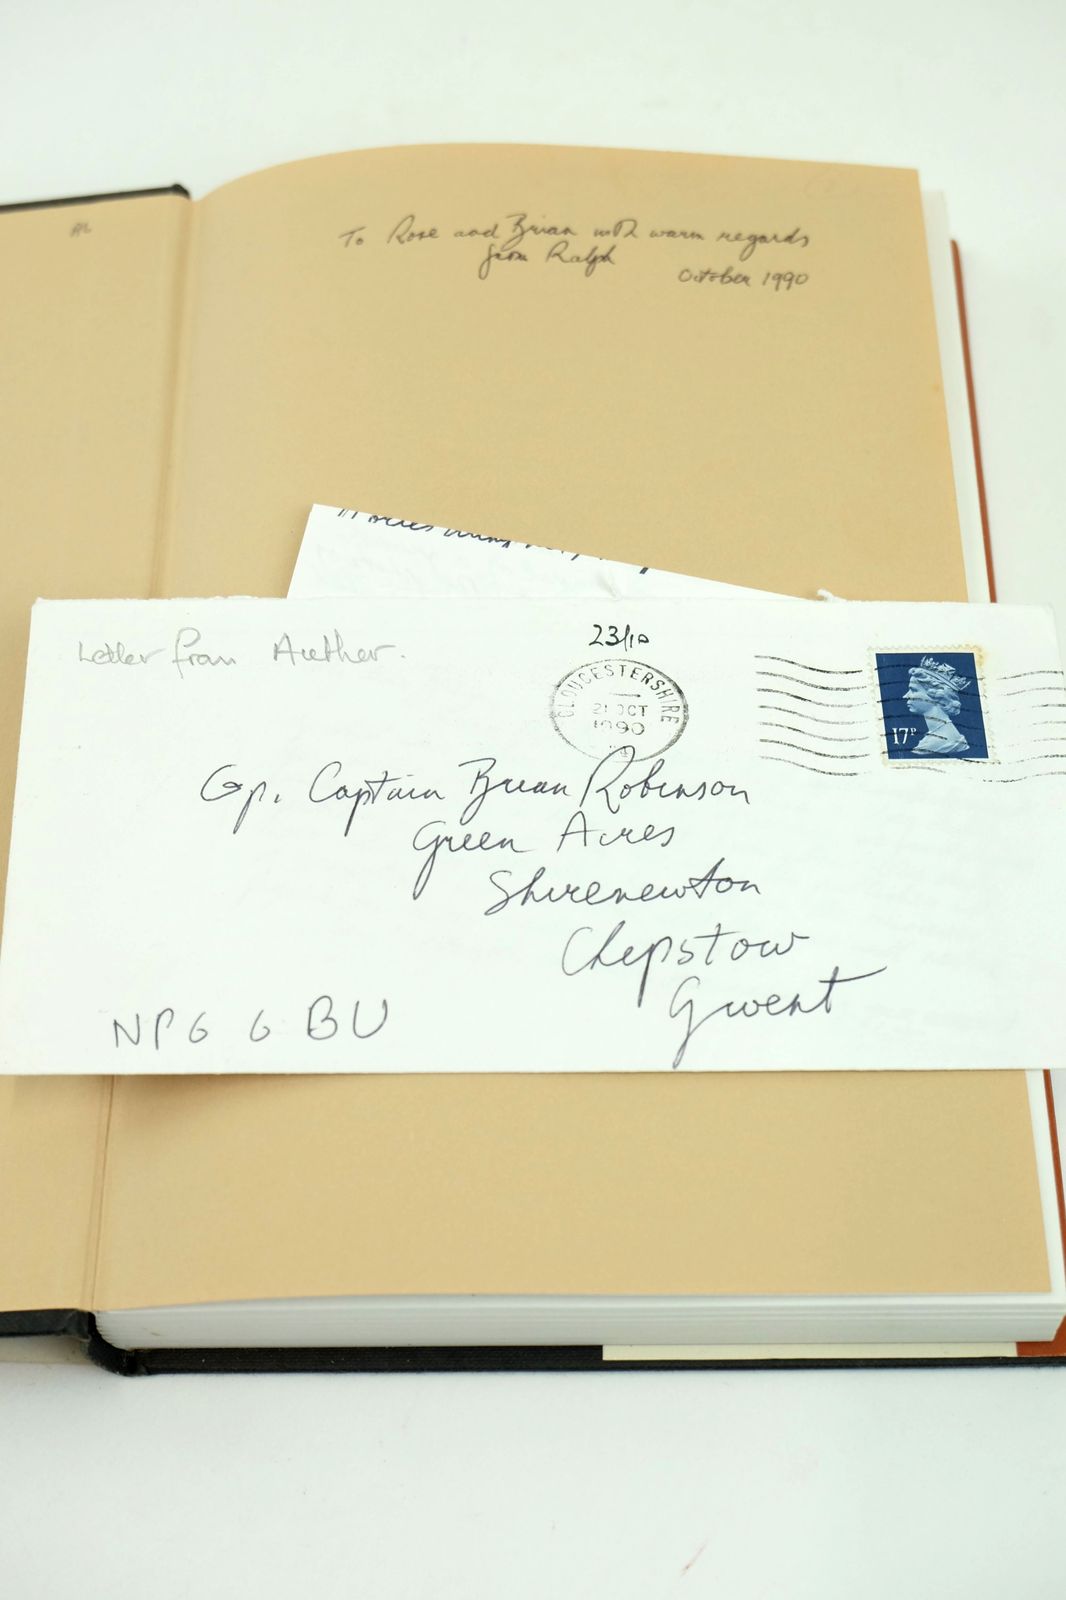 To Rose and Brian with warm regards
from Ralph
October 1990
Letter from Auther.
23/10
GLOUCESTERSHIRE
21 OCT
1990
17P
Gp. Captain Brian Robinson
Green Acres
Shirenewton
Chepstow
Gwent
NP6 6BU